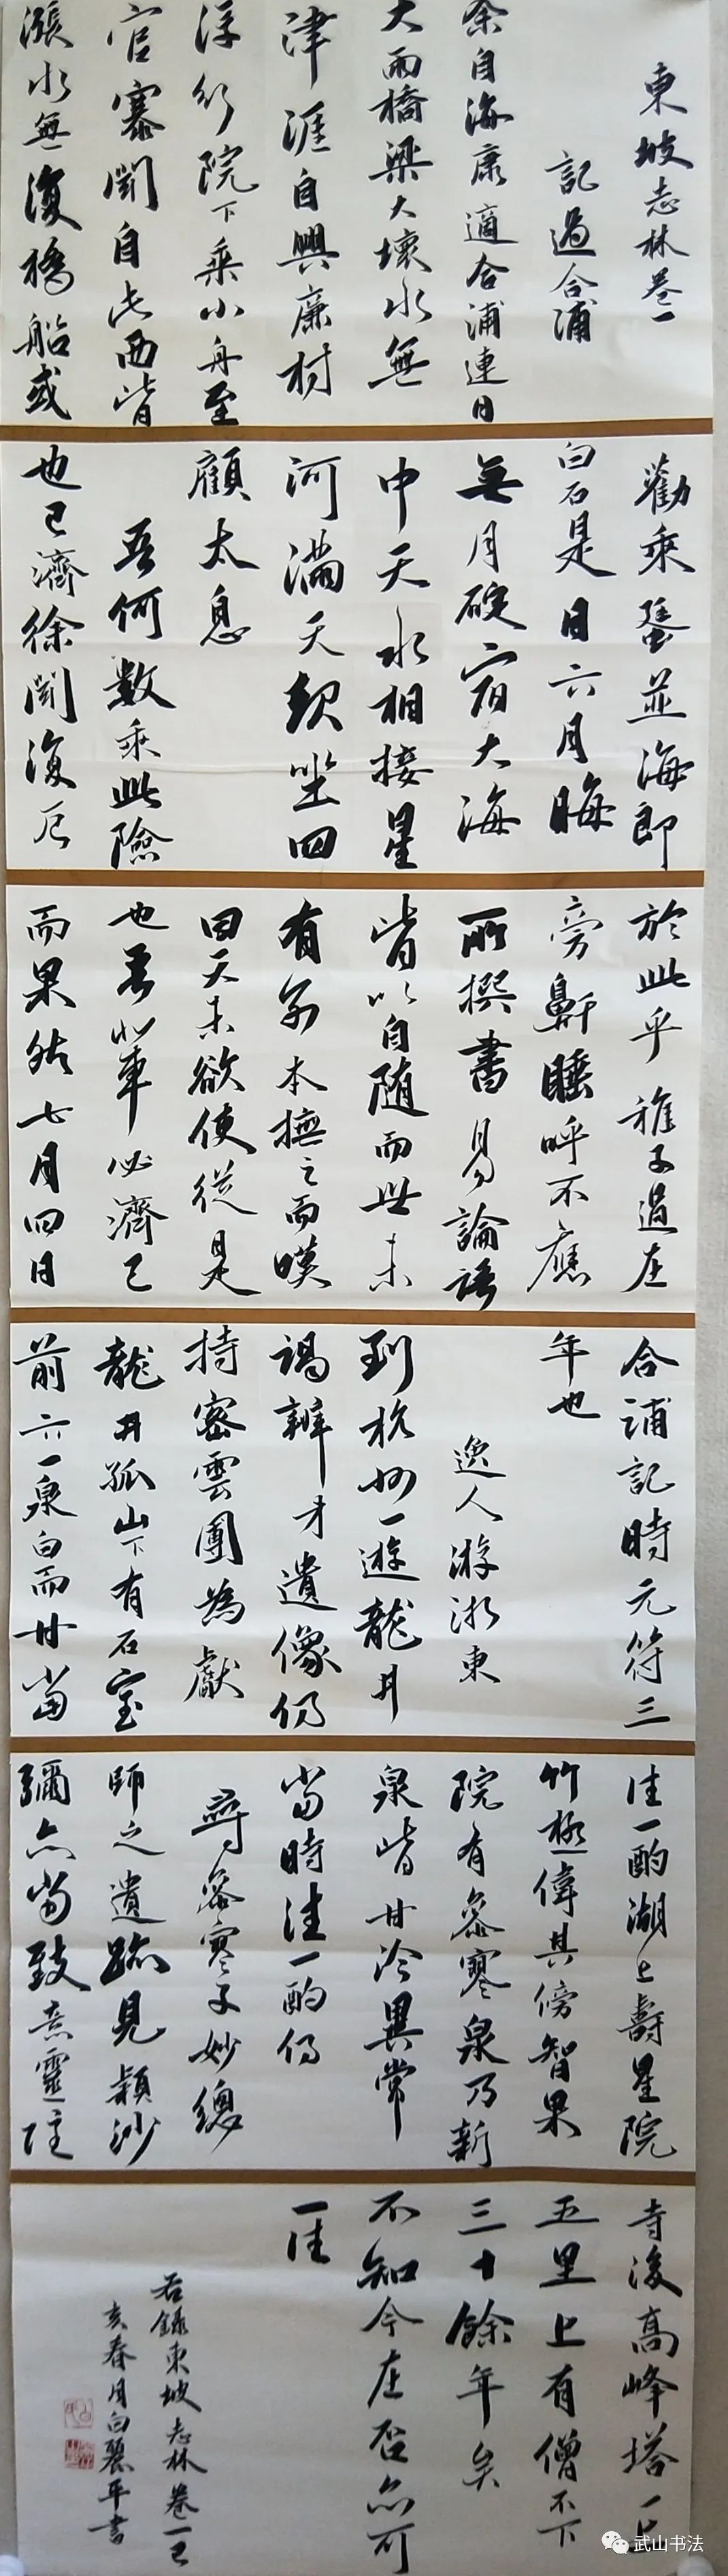 東坡志林卷一
記過合浦
余自海康適合浦連日
大雨橋梁大壞水無
津涯自興廉村
淨行院下乘小舟至
官寨聞自此西皆
漲水無復橋船或
勸乘蜑並海即
白石是日六月晦
無月碇宿大海
中天水相接星
河滿天起坐四
顧太息
吾何數乘此險
也已濟徐聞復厄
於此乎稚子過在
旁鼾睡呼不應
所撰書易論語
皆以自随而世未
有别本撫之而嘆
曰天未欲使從是
也吾輩必濟已
而果然七月四日
合浦記時元符三
年也
逸人游浙東
到杭州一遊龍井
謁辨才遺像仍
持密雲團為獻
龍井孤山下有石室
前六一泉白而甘當
往一酌湖上壽星院
竹極偉其傍智果
院有參寥泉乃新
泉皆甘冷異常
當時往一酌仍
尋參寥子妙總
師之遺跡見穎沙
彌亦當致意靈隱
寺後高峰塔一上
五里上有僧不下
三十餘年矣
不知今在否亦可
一往
右錄東坡志林卷一己
亥春月白麗平書
武山书法